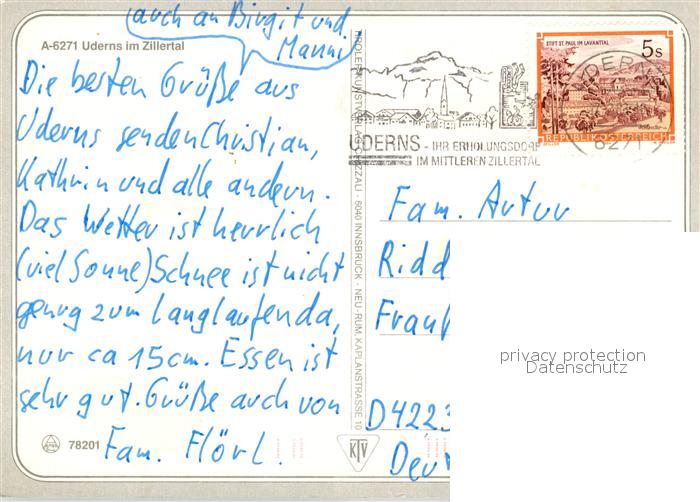 (auch an Birgit und
Manni)
A-6271 Uderns im Zillertal
Die besten Grüße aus
Uderns senden Christian,
Kathrin und alle andern.
Das Wetter ist herrlich
(viel Sonne) Schnee ist nicht
genug zum langlaufen da,
nur ca 15cm. Essen ist
sehr gut. Grüße auch von
Fam. Flörl.
78201
TIROLER KUNSTVERLAG CHIZZALI · 6040 INNSBRUCK · NEU-RUM, KAPLANSTRASSE 10
KTV
UDERNS - IHR ERHOLUNGSDORF
IM MITTLEREN ZILLERTAL
STIFT ST. PAUL IM LAVANTTAL
5s
REPUBLIK ÖSTERREICH
UDERNS
6271
Fam. Artur
Ridd
Frau
D 4223
Deu
privacy protection
Datenschutz